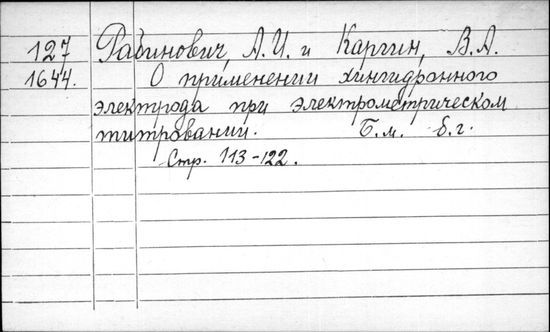 127 Рабинович, А.И. и Каргин, В.А.
1644. О применении хингидронного
электрода при электрометрическом
титровании. Б.м. б.г.
Стр. 113-122.